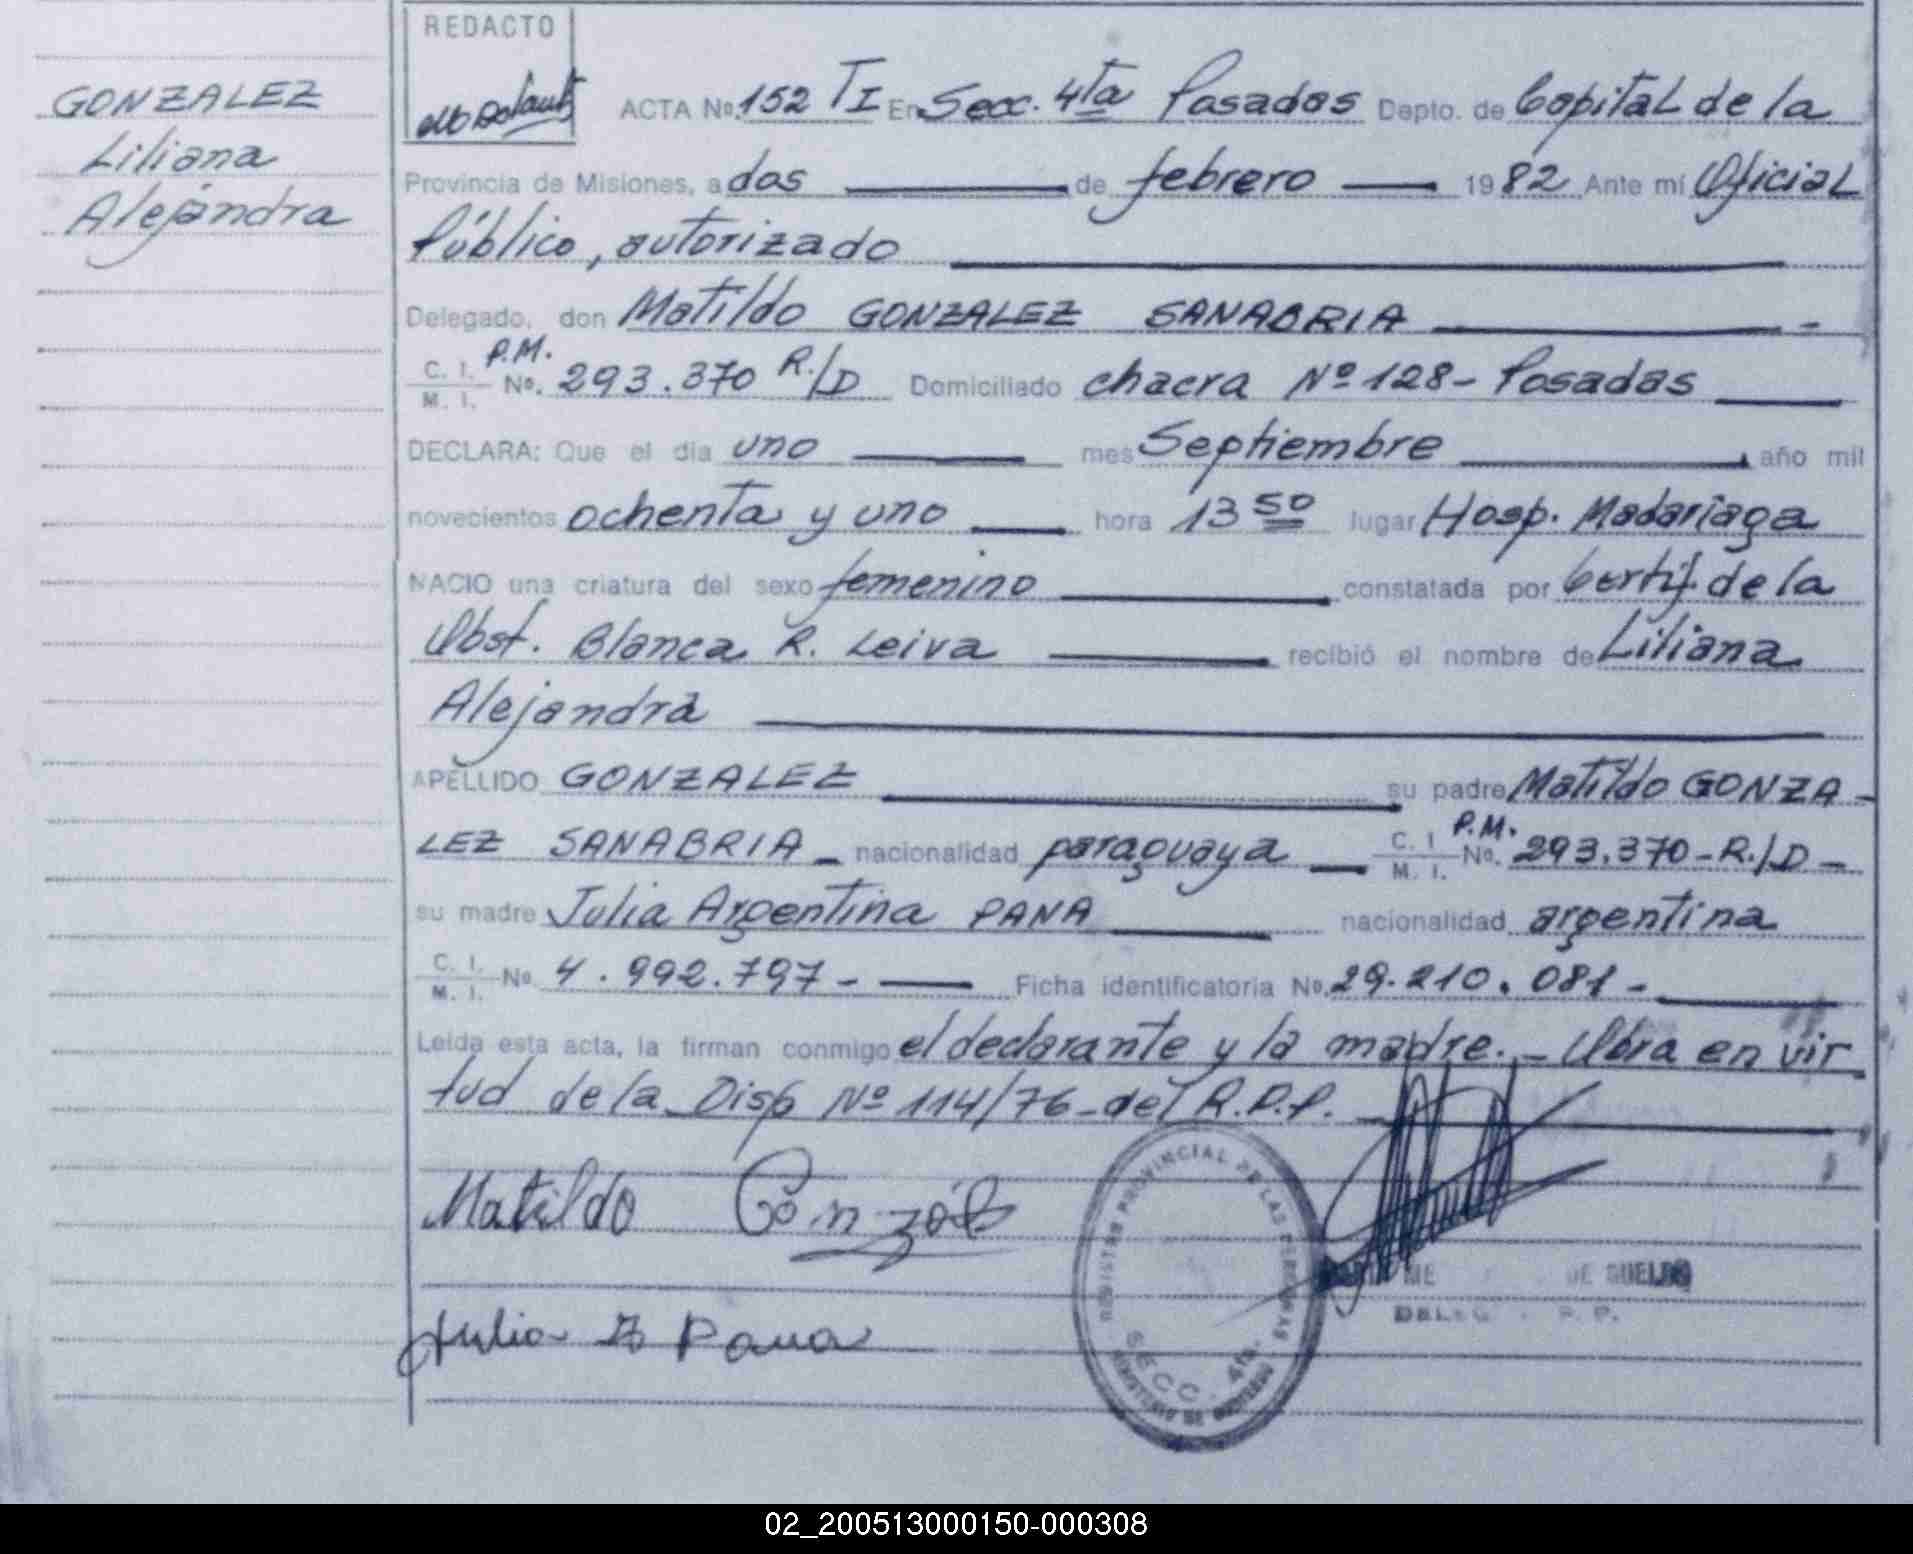 GONZALEZ
Liliana
Alejandra
REDACTO
ACTA No. 152 TI En Secc. 4ta Posadas Depto. de Capital de la
Provincia de Misiones, a dos de febrero 1982 Ante mí Oficial
Público, autorizado
Delegado, don Matildo GONZALEZ SANABRIA -
C. I. M. I. P.M. No. 293.370 R./D Domiciliado chacra Nº 128 - Posadas
DECLARA: Que el día uno mes Septiembre año mil
novecientos ochenta y uno hora 13 50 lugar Hosp. Madariaga
NACIO una criatura del sexo femenino constatada por Certif. de la
Obst. Blanca R. Leiva recibió el nombre de Liliana
Alejandra
APELLIDO GONZALEZ su padre Matildo GONZA-
LEZ SANABRIA - nacionalidad paraguaya C. I M. I. P.M. No. 293.370 - R./D -
su madre Julia Argentina PANA nacionalidad argentina
C. I. M. I. No. 4.992.797 - Ficha identificatoria No. 29.210.081 -
Leída esta acta, la firman conmigo el declarante y la madre. - Obra en vir
tud de la Disp Nº 114/76 - del R.P.P.
Matildo Gonzalez
Julia A Pana
REGISTRO PROVINCIAL DE LAS PERSONAS
SECC. 4ta.
MINISTERIO DE GOBIERNO
DE SUELDO
DELEG. R. P.
02_200513000150-000308